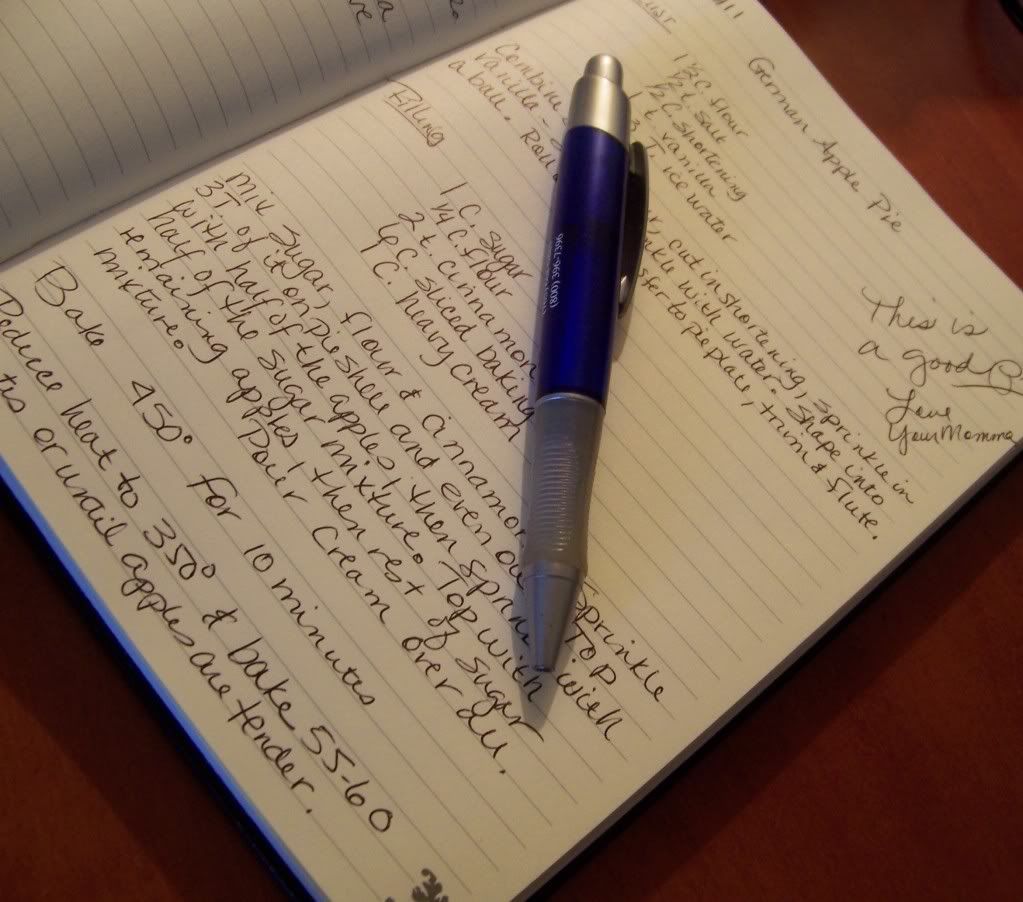 German Apple Pie
This is
a good
Love
Your Momma
1½ C flour
½ t. salt
½ C. shortening
1 t. vanilla
3 T. ice water
Combine cut in shortening, sprinkle in
vanilla - with water. Shape into
a ball. Roll to pie plate, trim & flute.
Filling
1 C. sugar
¼ C. flour
2 t. cinnamon
6 C. sliced baking
1 C. heavy cream
Mix sugar, flour & cinnamon Sprinkle
3T of it on pie shell and even out Top
with half of the apples then sprinkle with
half of the sugar mixture. Top with
remaining apples then rest of sugar
mixture. Pour cream over all.
Bake 450° for 10 minutes
Reduce heat to 350° & bake 55-60
or until apples are tender.